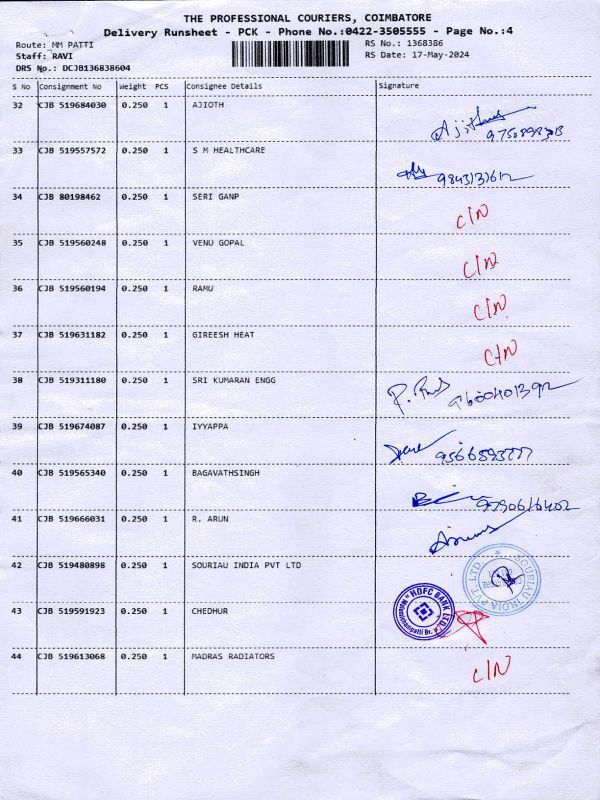 THE PROFESSIONAL COURIERS, COIMBATORE
Delivery Runsheet - PCK - Phone No.:0422-3505555 - Page No.:4
Route: MM PATTI RS No.: 1368386
Staff: RAVI RS Date: 17-May-2024
DRS No.: DCJB136838604
S No Consignment No Weight PCS Consignee Details Signature
32 CJB 519684030 0.250 1 AJIOTH
Ajith
33 CJB 519557572 0.250 1 S M HEALTHCARE
34 CJB 80198462 0.250 1 SERI GANP
C/N
35 CJB 519560248 0.250 1 VENU GOPAL
C/N
36 CJB 519560194 0.250 1 RAMU
C/N
37 CJB 519631182 0.250 1 GIREESH HEAT
C/N
38 CJB 519311180 0.250 1 SRI KUMARAN ENGG
9600401392
39 CJB 519674087 0.250 1 IYYAPPA
40 CJB 519565340 0.250 1 BAGAVATHSINGH
9790616402
41 CJB 519666031 0.250 1 R. ARUN
42 CJB 519480898 0.250 1 SOURIAU INDIA PVT LTD
SOURIAU INDIA PVT LTD
43 CJB 519591923 0.250 1 CHEDHUR
HDFC BANK LTD.
44 CJB 519613068 0.250 1 MADRAS RADIATORS
C/N